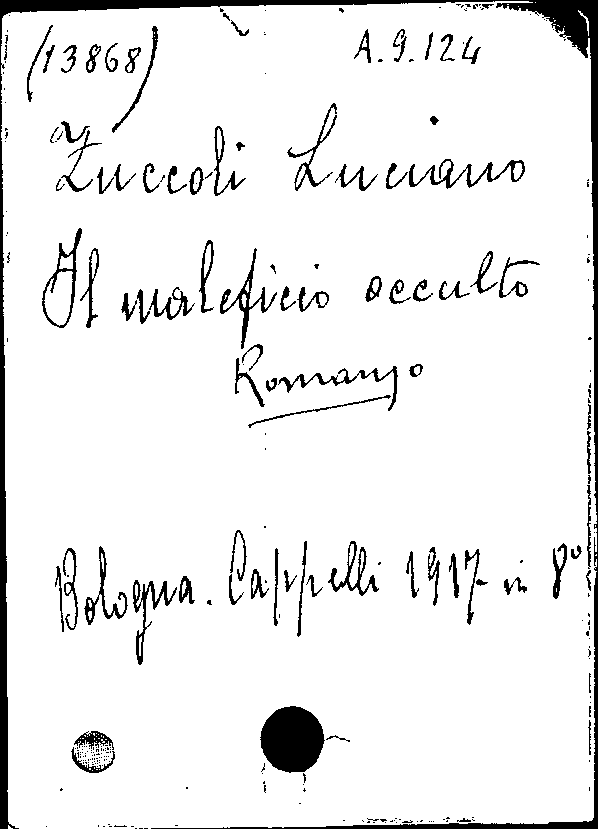 (13868) A.9.124
Zuccoli Luciano
Il maleficio occulto
Romanzo
Bologna. Cappelli 1917 in 8°